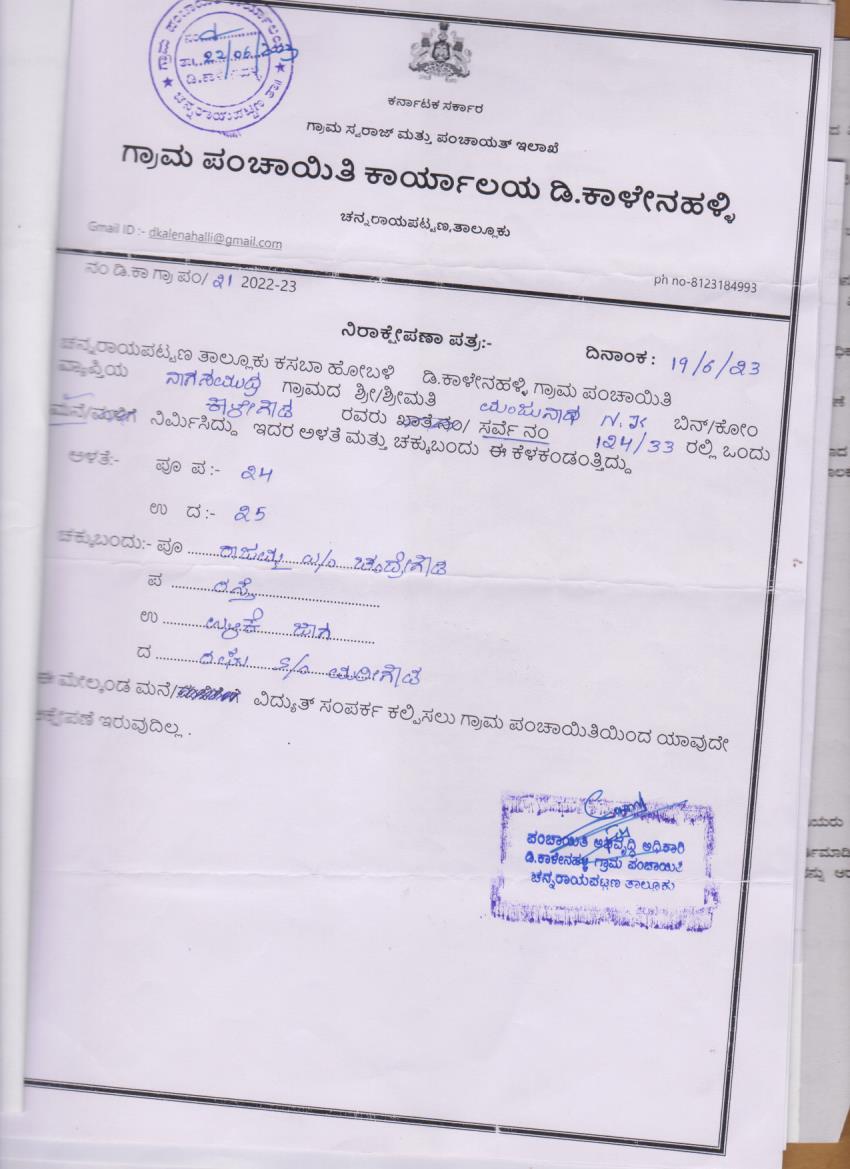 ಗ್ರಾಮ ಪಂಚಾಯಿತಿ ಕಾರ್ಯಾಲಯ
22/06/2023
ಡಿ.ಕಾಳೇನಹಳ್ಳಿ
ಚನ್ನರಾಯಪಟ್ಟಣ ತಾ||
ಕರ್ನಾಟಕ ಸರ್ಕಾರ
ಗ್ರಾಮ ಸ್ವರಾಜ್ ಮತ್ತು ಪಂಚಾಯತ್ ಇಲಾಖೆ
ಗ್ರಾಮ ಪಂಚಾಯಿತಿ ಕಾರ್ಯಾಲಯ ಡಿ.ಕಾಳೇನಹಳ್ಳಿ
ಚನ್ನರಾಯಪಟ್ಟಣ,ತಾಲ್ಲೂಕು
Gmail ID :- dkalenahalli@gmail.com
ph no-8123184993
ನಂ ಡಿ.ಕಾ ಗ್ರಾ ಪಂ/ ೩1 2022-23
ನಿರಾಕ್ಷೇಪಣಾ ಪತ್ರ:-
ದಿನಾಂಕ : 19/6/೩3
ಚನ್ನರಾಯಪಟ್ಟಣ ತಾಲ್ಲೂಕು ಕಸಬಾ ಹೋಬಳಿ ಡಿ.ಕಾಳೇನಹಳ್ಳಿ ಗ್ರಾಮ ಪಂಚಾಯಿತಿ
ವ್ಯಾಪ್ತಿಯ ನಾಗಸಮುದ್ರ ಗ್ರಾಮದ ಶ್ರೀ/ಶ್ರೀಮತಿ ಮಂಜುನಾಥ N.K ಬಿನ್/ಕೋಂ
ಕಾಳೇಗೌಡ ರವರು ಖಾತೆನಂ/ ಸರ್ವೆ ನಂ 124/33 ರಲ್ಲಿ ಒಂದು
ಮನೆ/ಮಳಿಗೆ ನಿರ್ಮಿಸಿದ್ದು ಇದರ ಅಳತೆ ಮತ್ತು ಚಕ್ಕುಬಂದು ಈ ಕೆಳಕಂಡಂತ್ತಿದ್ದು
ಅಳತೆ:- ಪೂ ಪ :- ೩4
ಉ ದ :- ೩5
ಚಕ್ಕುಬಂದು:- ಪೂ ರಾಜಮ್ಮ W/O ಚಂದ್ರೇಗೌಡ
ಪ ರಸ್ತೆ
ಉ ಉಳಿಕೆ ಜಾಗ
ದ S/O
ಈ ಮೇಲ್ಕಂಡ ಮನೆ/ ವಿದ್ಯುತ್ ಸಂಪರ್ಕ ಕಲ್ಪಿಸಲು ಗ್ರಾಮ ಪಂಚಾಯಿತಿಯಿಂದ ಯಾವುದೇ
ಕ್ಷೇಪಣೆ ಇರುವುದಿಲ್ಲ .
ಪಂಚಾಯಿತಿ ಅಭಿವೃದ್ಧಿ ಅಧಿಕಾರಿ
ಡಿ.ಕಾಳೇನಹಳ್ಳಿ ಗ್ರಾಮ ಪಂಚಾಯಿತಿ
ಚನ್ನರಾಯಪಟ್ಟಣ ತಾಲೂಕು